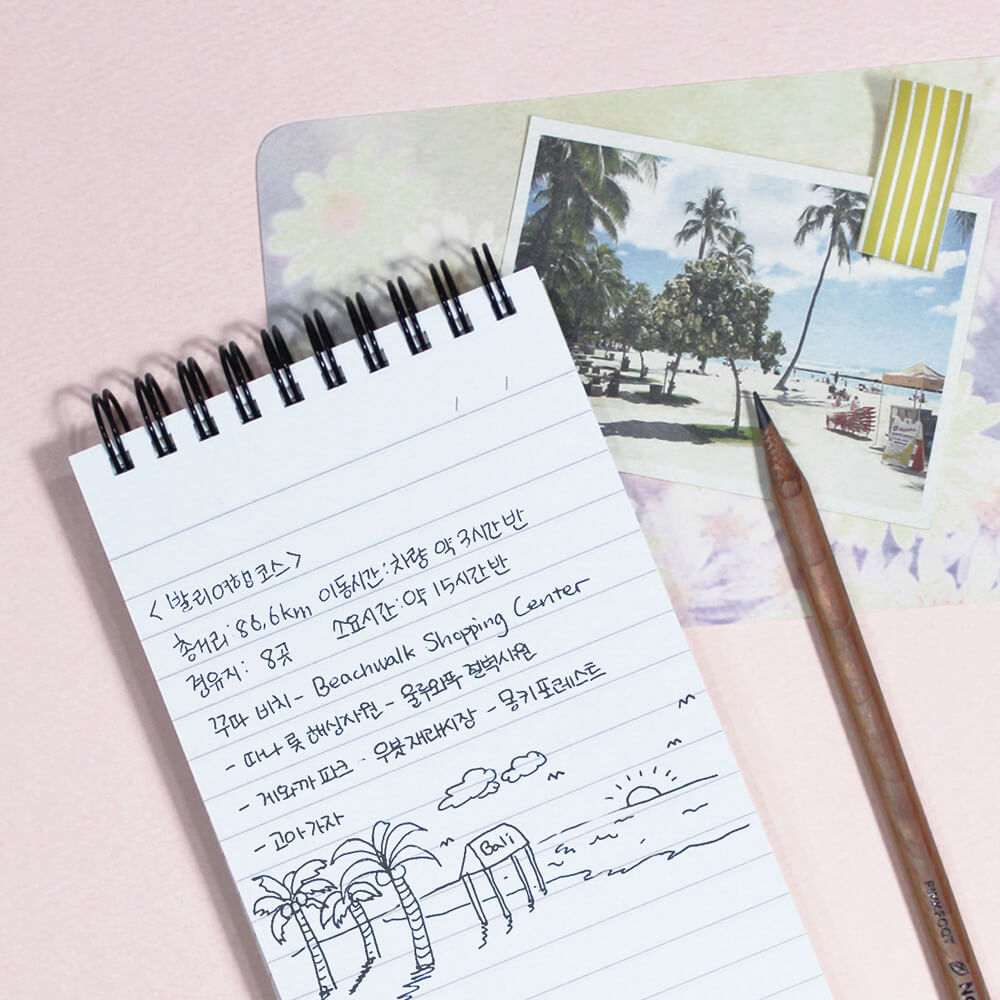 <발리여행 코스>
총거리: 86,6km 이동시간: 차량 약 3시간 반
경유지: 8곳 소요시간: 약 15시간 반
꾸따 비치 - Beachwalk Shopping Center
- 따나 롯 해상사원 - 울루와뚜 절벽사원
- 게와까 파크 · 우붓재래시장 - 몽키포레스트
- 고아가자
Bali
PINKFOOT